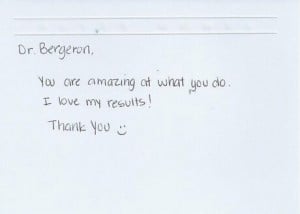 Dr. Bergeron,
You are amazing at what you do.
I love my results!
Thank You :)